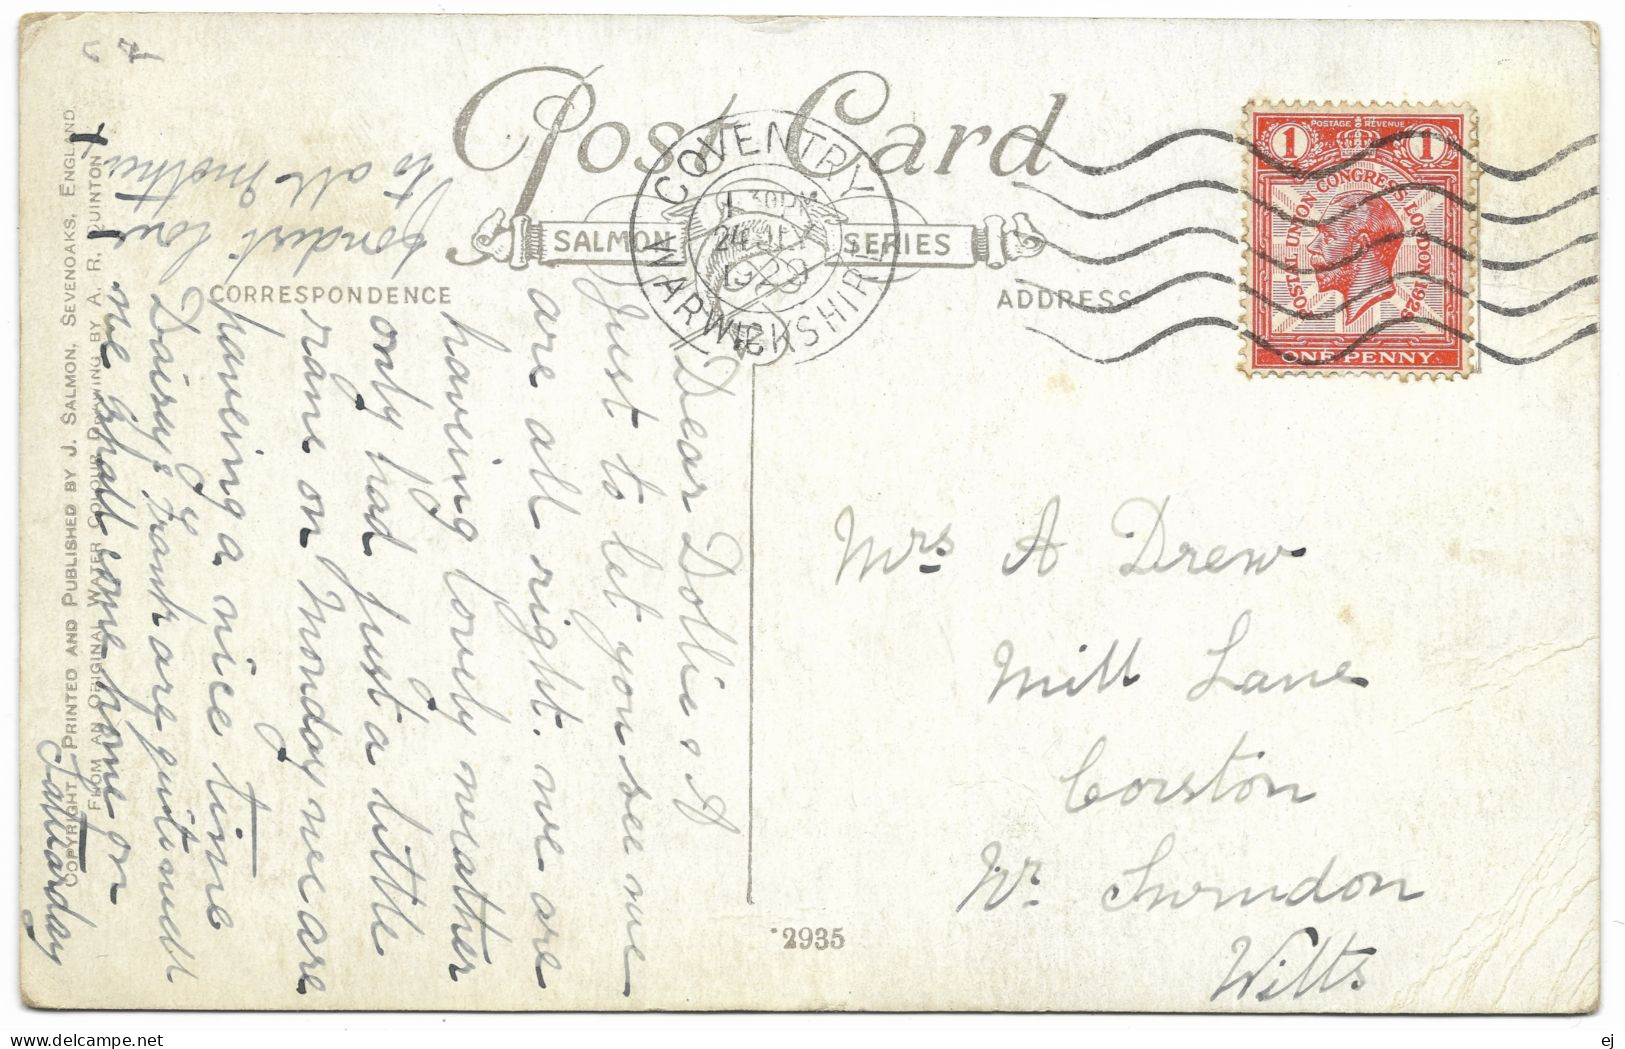 Post Card
SALMON SERIES
CORRESPONDENCE
ADDRESS
COVENTRY
WARWICKSHIRE
30PM
24 JLY
1929
1 POSTAGE REVENUE 1
POSTAL UNION CONGRESS LONDON 1929
ONE PENNY
Dear Dollie & A
Just to let you see we
are all right. we are
having lovely weather
only had just a little
rain on Monday we are
having a nice time
Daisy & Frank are quite well
we shall come home on
Satuarday
fondest love
to all Mother
Mrs A Drew
Mill Lane
Corston
Nr. Swindon
Wilts
2935
COPYRIGHT. PRINTED AND PUBLISHED BY J. SALMON, SEVENOAKS, ENGLAND
FROM AN ORIGINAL WATER COLOUR DRAWING BY A. R. QUINTON
www.delcampe.net
ej